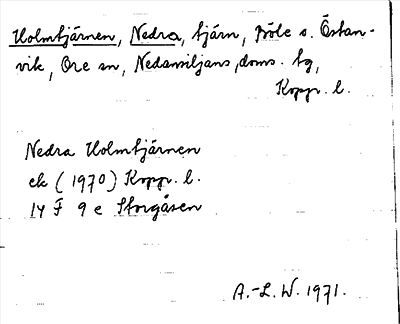 Holmtjärnen, Nedra, tjärn, Pöle s. Östan-
vik, Ore sn, Nedansiljans doms. tg,
Kopp. l.
Nedra Holmtjärnen
ek (1970) Kopp. l.
14 F 9 e Storgåsen
A.-L. W. 1971.